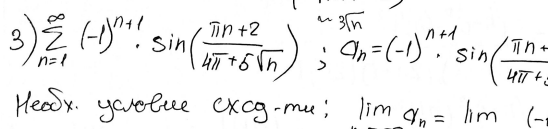 ~ 3√n
3) ∞ Σ n=1 (-1)^{n+1} · sin(πn+2 / 4π+5√n) ; a_n = (-1)^{n+1} · sin(πn+ / 4π+
Необх. условие сход-ти; lim a_n = lim (-